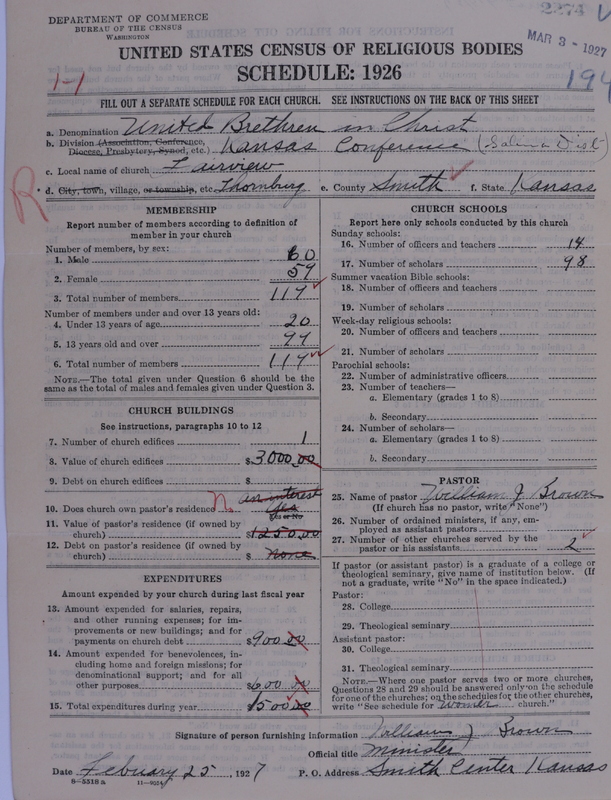 DEPARTMENT OF COMMERCE
BUREAU OF THE CENSUS
WASHINGTON
2274
MAR 3 - 1927
194
UNITED STATES CENSUS OF RELIGIOUS BODIES
SCHEDULE: 1926
1-1
FILL OUT A SEPARATE SCHEDULE FOR EACH CHURCH. SEE INSTRUCTIONS ON THE BACK OF THIS SHEET
a. Denomination United Brethren in Christ
b. Division (Association, Conference, Diocese, Presbytery, Synod, etc.) Kansas Conference (Salina Dist)
c. Local name of church Fairview
d. City, town, village, or township, etc. Thornburg e. County Smith f. State Kansas
R
MEMBERSHIP
Report number of members according to definition of
member in your church
Number of members, by sex:
1. Male 60
2. Female 57
3. Total number of members 117
Number of members under and over 13 years old:
4. Under 13 years of age 20
5. 13 years old and over 97
6. Total number of members 117
NOTE.—The total given under Question 6 should be
same as the total of males and females given under Question 3.
CHURCH BUILDINGS
See instructions, paragraphs 10 to 12
7. Number of church edifices 1
8. Value of church edifices $3000.00
9. Debt on church edifices $
10. Does church own pastor's residence No an interest Yes
Yes or No
11. Value of pastor's residence (if owned by
church) $1250.00
12. Debt on pastor's residence (if owned by
church) $ None
EXPENDITURES
Amount expended by your church during last fiscal year
13. Amount expended for salaries, repairs,
and other running expenses; for im-
provements or new buildings; and for
payments on church debt $900.00
14. Amount expended for benevolences, in-
cluding home and foreign missions; for
denominational support; and for all
other purposes $600.00
15. Total expenditures during year $1500.00
CHURCH SCHOOLS
Report here only schools conducted by this church
Sunday schools:
16. Number of officers and teachers 14
17. Number of scholars 98
Summer vacation Bible schools:
18. Number of officers and teachers
19. Number of scholars
Week-day religious schools:
20. Number of officers and teachers
21. Number of scholars
Parochial schools:
22. Number of administrative officers
23. Number of teachers—
a. Elementary (grades 1 to 8)
b. Secondary
24. Number of scholars—
a. Elementary (grades 1 to 8)
b. Secondary
PASTOR
25. Name of pastor William J Brown
(If church has no pastor, write "None")
26. Number of ordained ministers, if any, em-
ployed as assistant pastors
27. Number of other churches served by the
pastor or his assistants 2
If pastor (or assistant pastor) is a graduate of a college or
theological seminary, give name of institution below. (If
not a graduate, write "No" in the space indicated.)
Pastor:
28. College
29. Theological seminary
Assistant pastor:
30. College
31. Theological seminary
NOTE.—Where one pastor serves two or more churches,
Questions 28 and 29 should be answered only on the schedule
for one of the churches; on the schedules for the other churches,
write "See schedule for Womer church."
Signature of person furnishing information William J Brown
Official title Minister
Date February 25 1927 P. O. Address Smith Center Kansas
8-5518a 11-9024